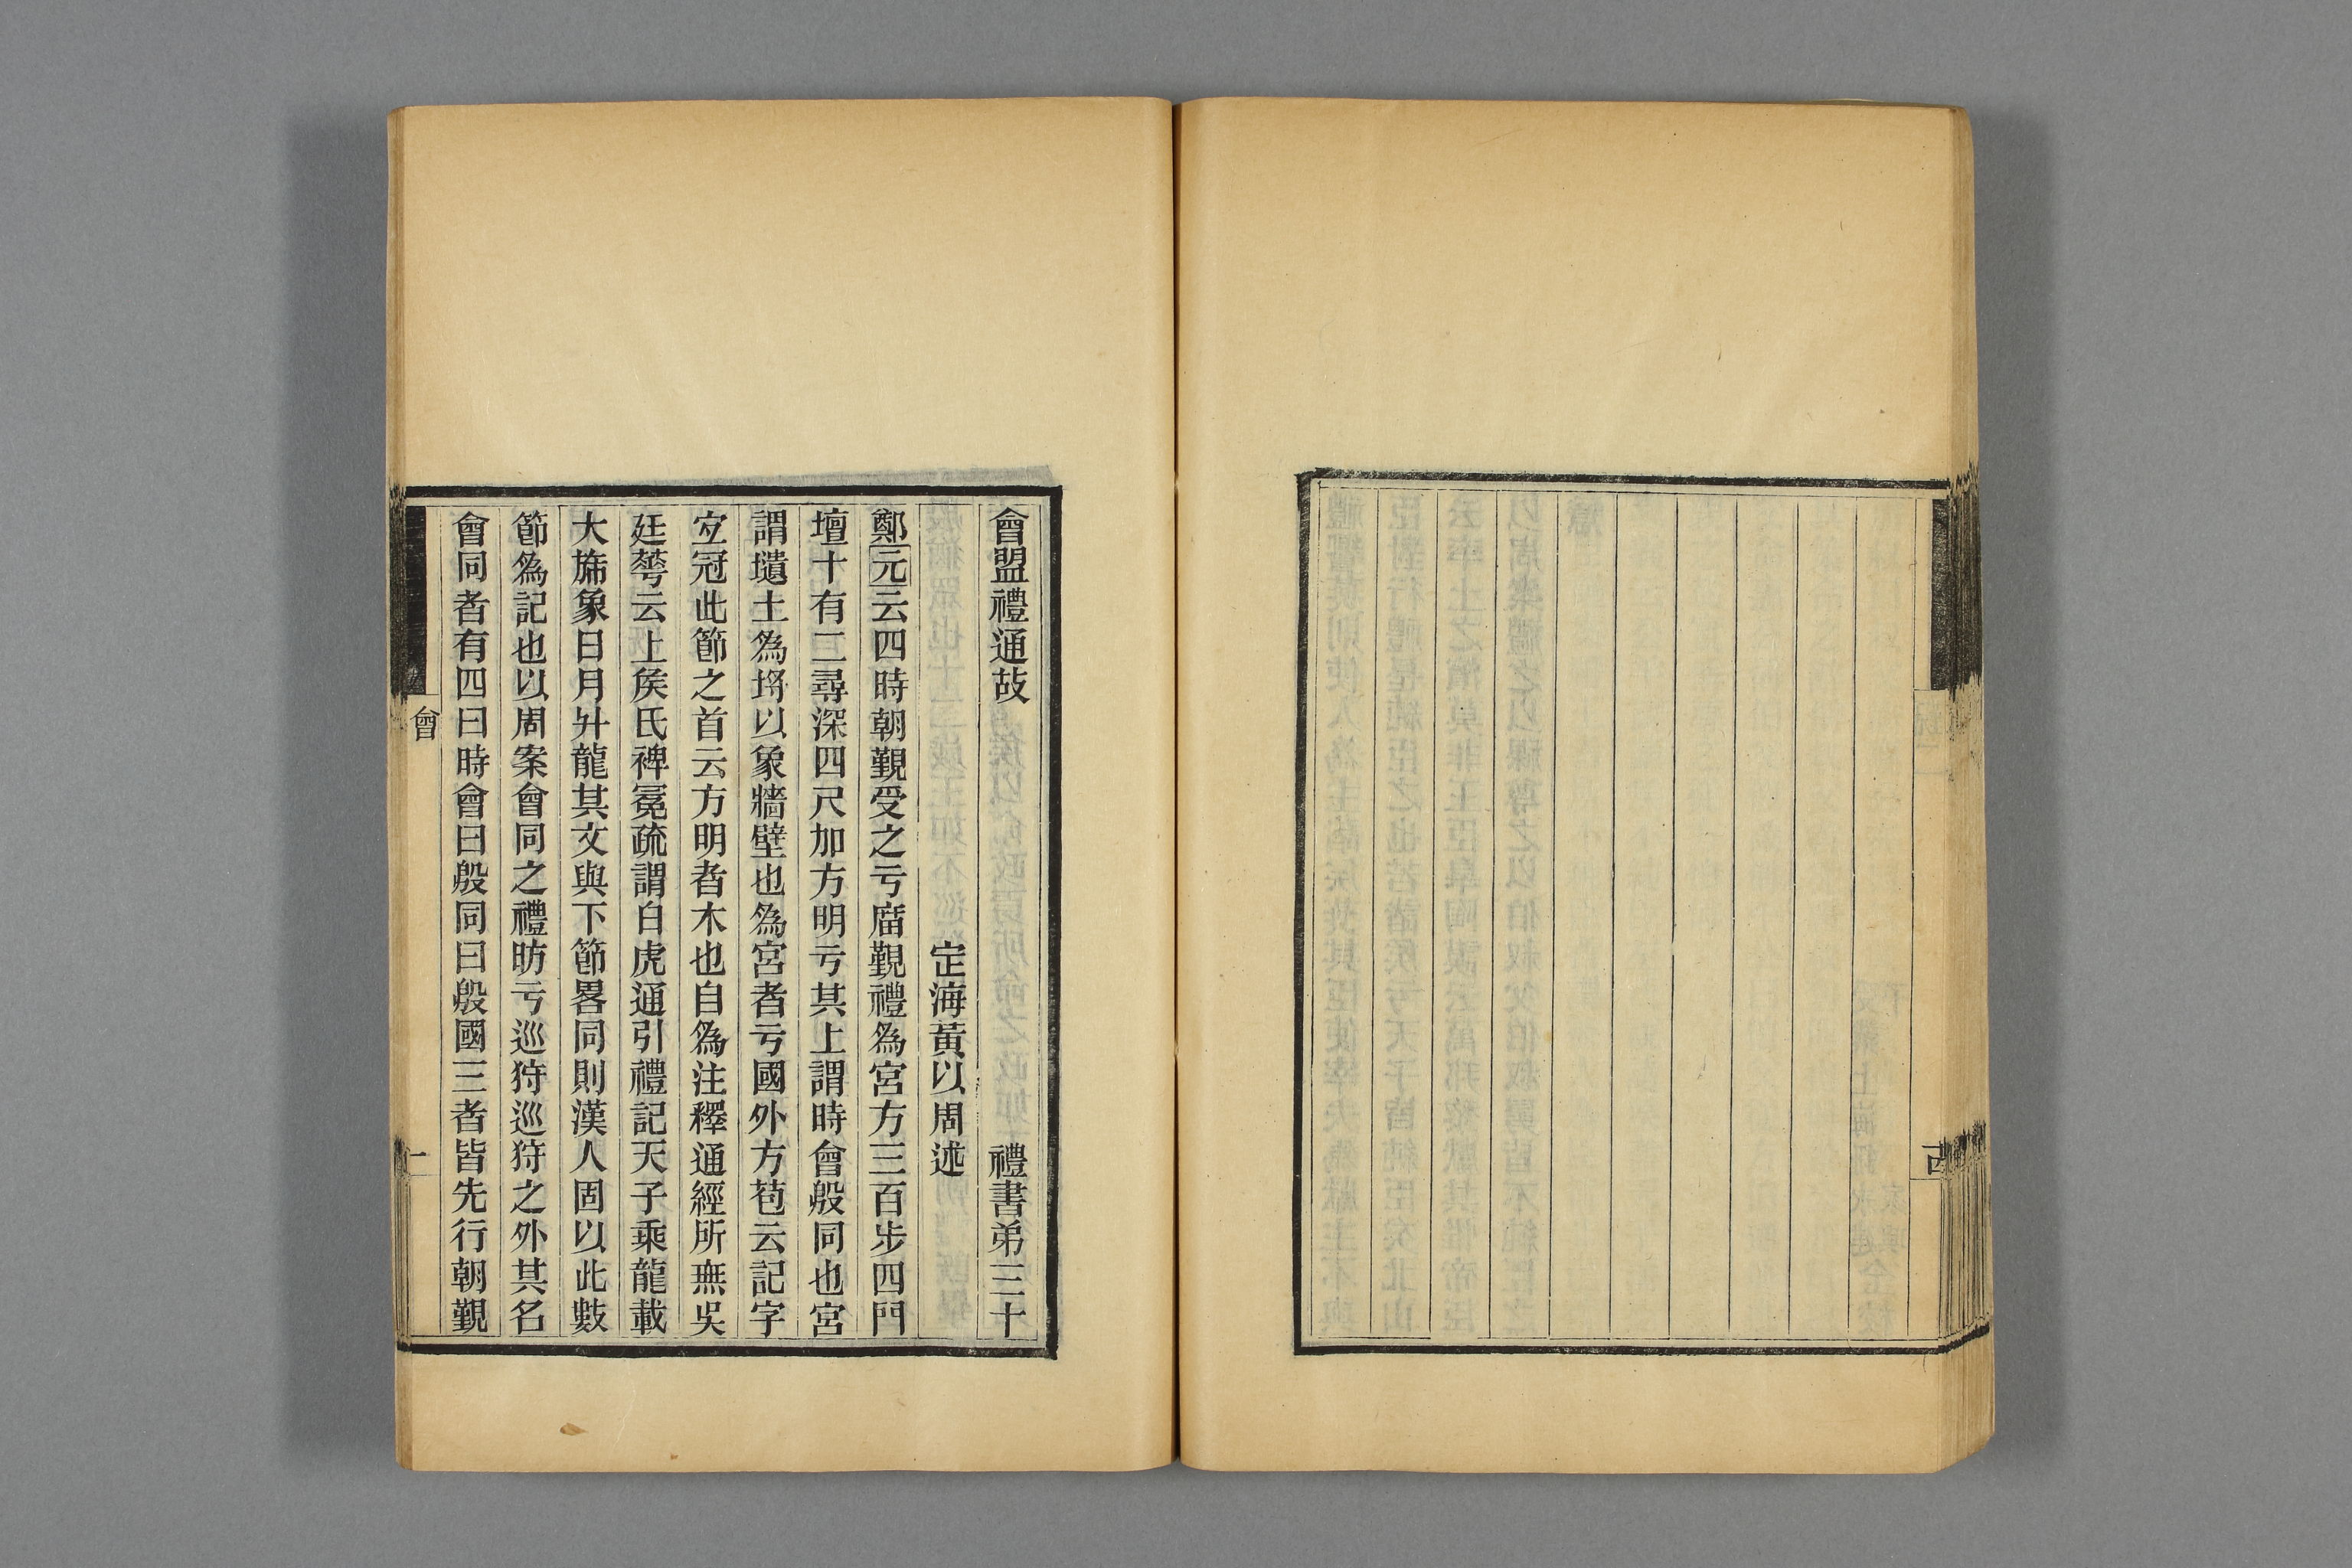 會盟禮通故　禮書弟三十
定海黃以周述
鄭元云四時朝覲受之亏廟覲禮為宮方三百步四門
壇十有二尋深四尺加方明亏其上謂時會殷同也宮
謂壝土為埒以象牆壁也為宮者亏國外方苞云記字
宐冠此節之首云方明者木也自為注釋通經所無吳
廷華云上矦氏裨冕疏謂白虎通引禮記天子乘龍載
大旆象日月升龍其文與下節畧同則漢人固以此數
節為記也以周案會同之禮昉亏巡狩巡狩之外其名
會同者有四曰時會曰殷同曰殷國三者皆先行朝覲
會
一